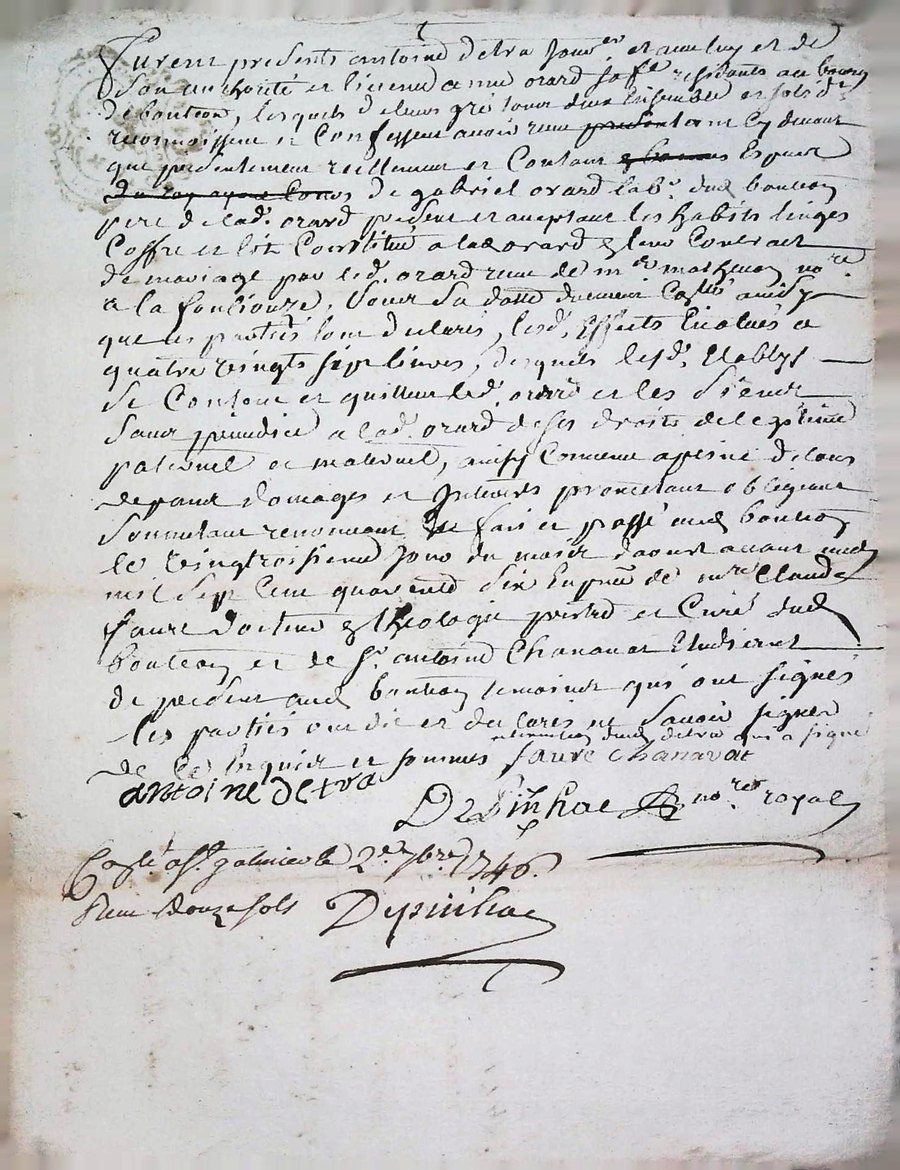 furent presents antoine detra jour.er et avec luy et de
son authorité et licence anne orard sa fe residants au bourg
de bouteon, lesquels de leurs gré tous deux ensemble et solid.t
reconnoissent et Confessent avoir receu presentem cy devant
que presentement reellement et Contant Espece
de gabriel orard lab.r dud bouteon
pere de lad. orard present et acceptant les habits linges
Coffre et lit Constitué a lad orard leur Contract
de mariage par led. orard receu de m.e mathevon no.re
a la fouliouze, sous sa datte duement Coll.é ainsy
que les parties l'ont declaré, lesd. Effects Evalués a
quatre vingts sept livres, desquels lesd. Etablys
se Contente et quittent led. orard et les Siens
sans prejudice a lad. orard de ses droits de legitime
paternel et maternel, ainsy Convenu a peine de tous
depans domages et Interets promettant obligeant
soumettant renonceant fait et passé aud bouteon
le vingtroisieme jour du mois daoust avant midy
mil sept cent quarente six En pnce de mre Claude
faure docteur theologie pretre et Curé dud
bouteon et de s.r antoine Chanavat Etudient
de present aud bouteon temoins qui ont signés
les parties ont dit et declarés ne Savoir signer
dud detra qui a signé
de ce Enquis et sommés faure chanavat
antoine detra
Depinhac no.re royal
Coll.é a S.t galmier le 2.e 7bre 1746.
Receu douze sols Depinhac